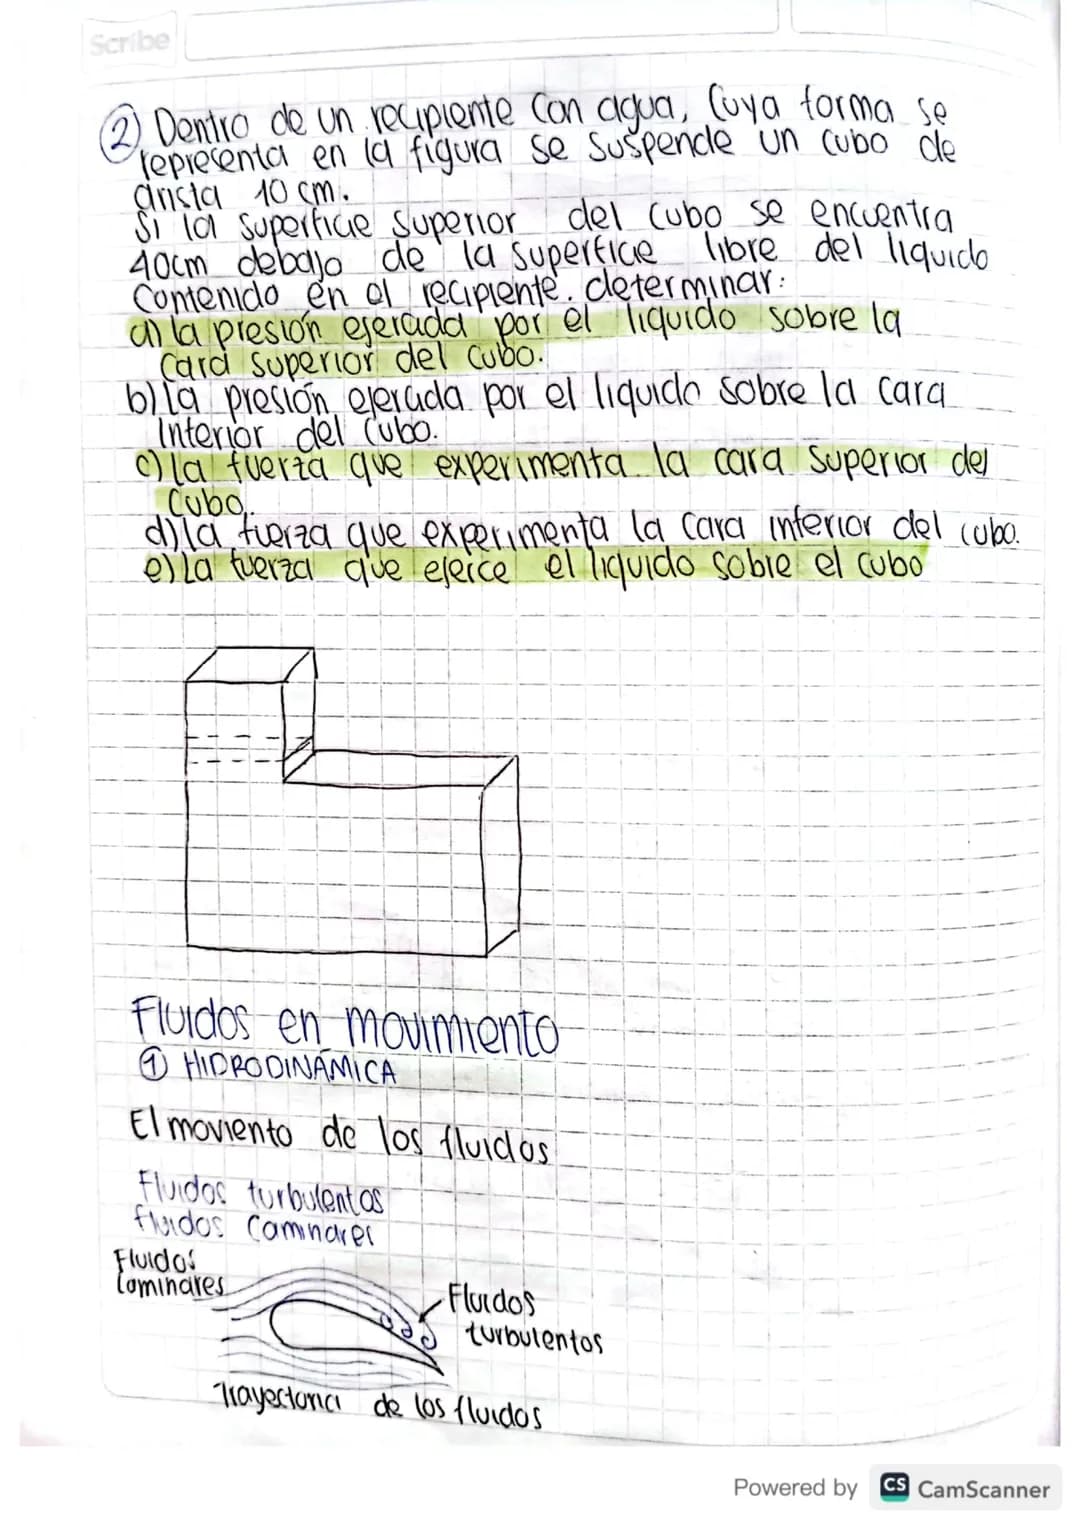 Scribe
② Dentro de un recipiente con agua, cuya forma se
representa en la figura se suspende un cubo de
arista 10 cm.
Si la superficie superior del cubo se encuentra
40cm debajo de la superfice libre del liquido
Contenido en el recipiente. determinar:
a) la presión ejercida por el liquido sobre la
cara superior del cubo.
b) la presión ejercida por el liquido sobre la cara
Interior del cubo.
c) la fuerza que experimenta la cara superior del
Cubo.
d) la fuerza que experimenta la cara inferior del cubo.
e) La fuerza que ejerce el liquido sobre el cubo
Fluidos en movimiento
① HIDRODINÁMICA
El moviento de los fluidos
Fluidos turbulentos
fluidos Caminares
Fluidos
laminares
Fluidos
turbulentos
Trayectoria de los fluidos
Powered by CS CamScanner